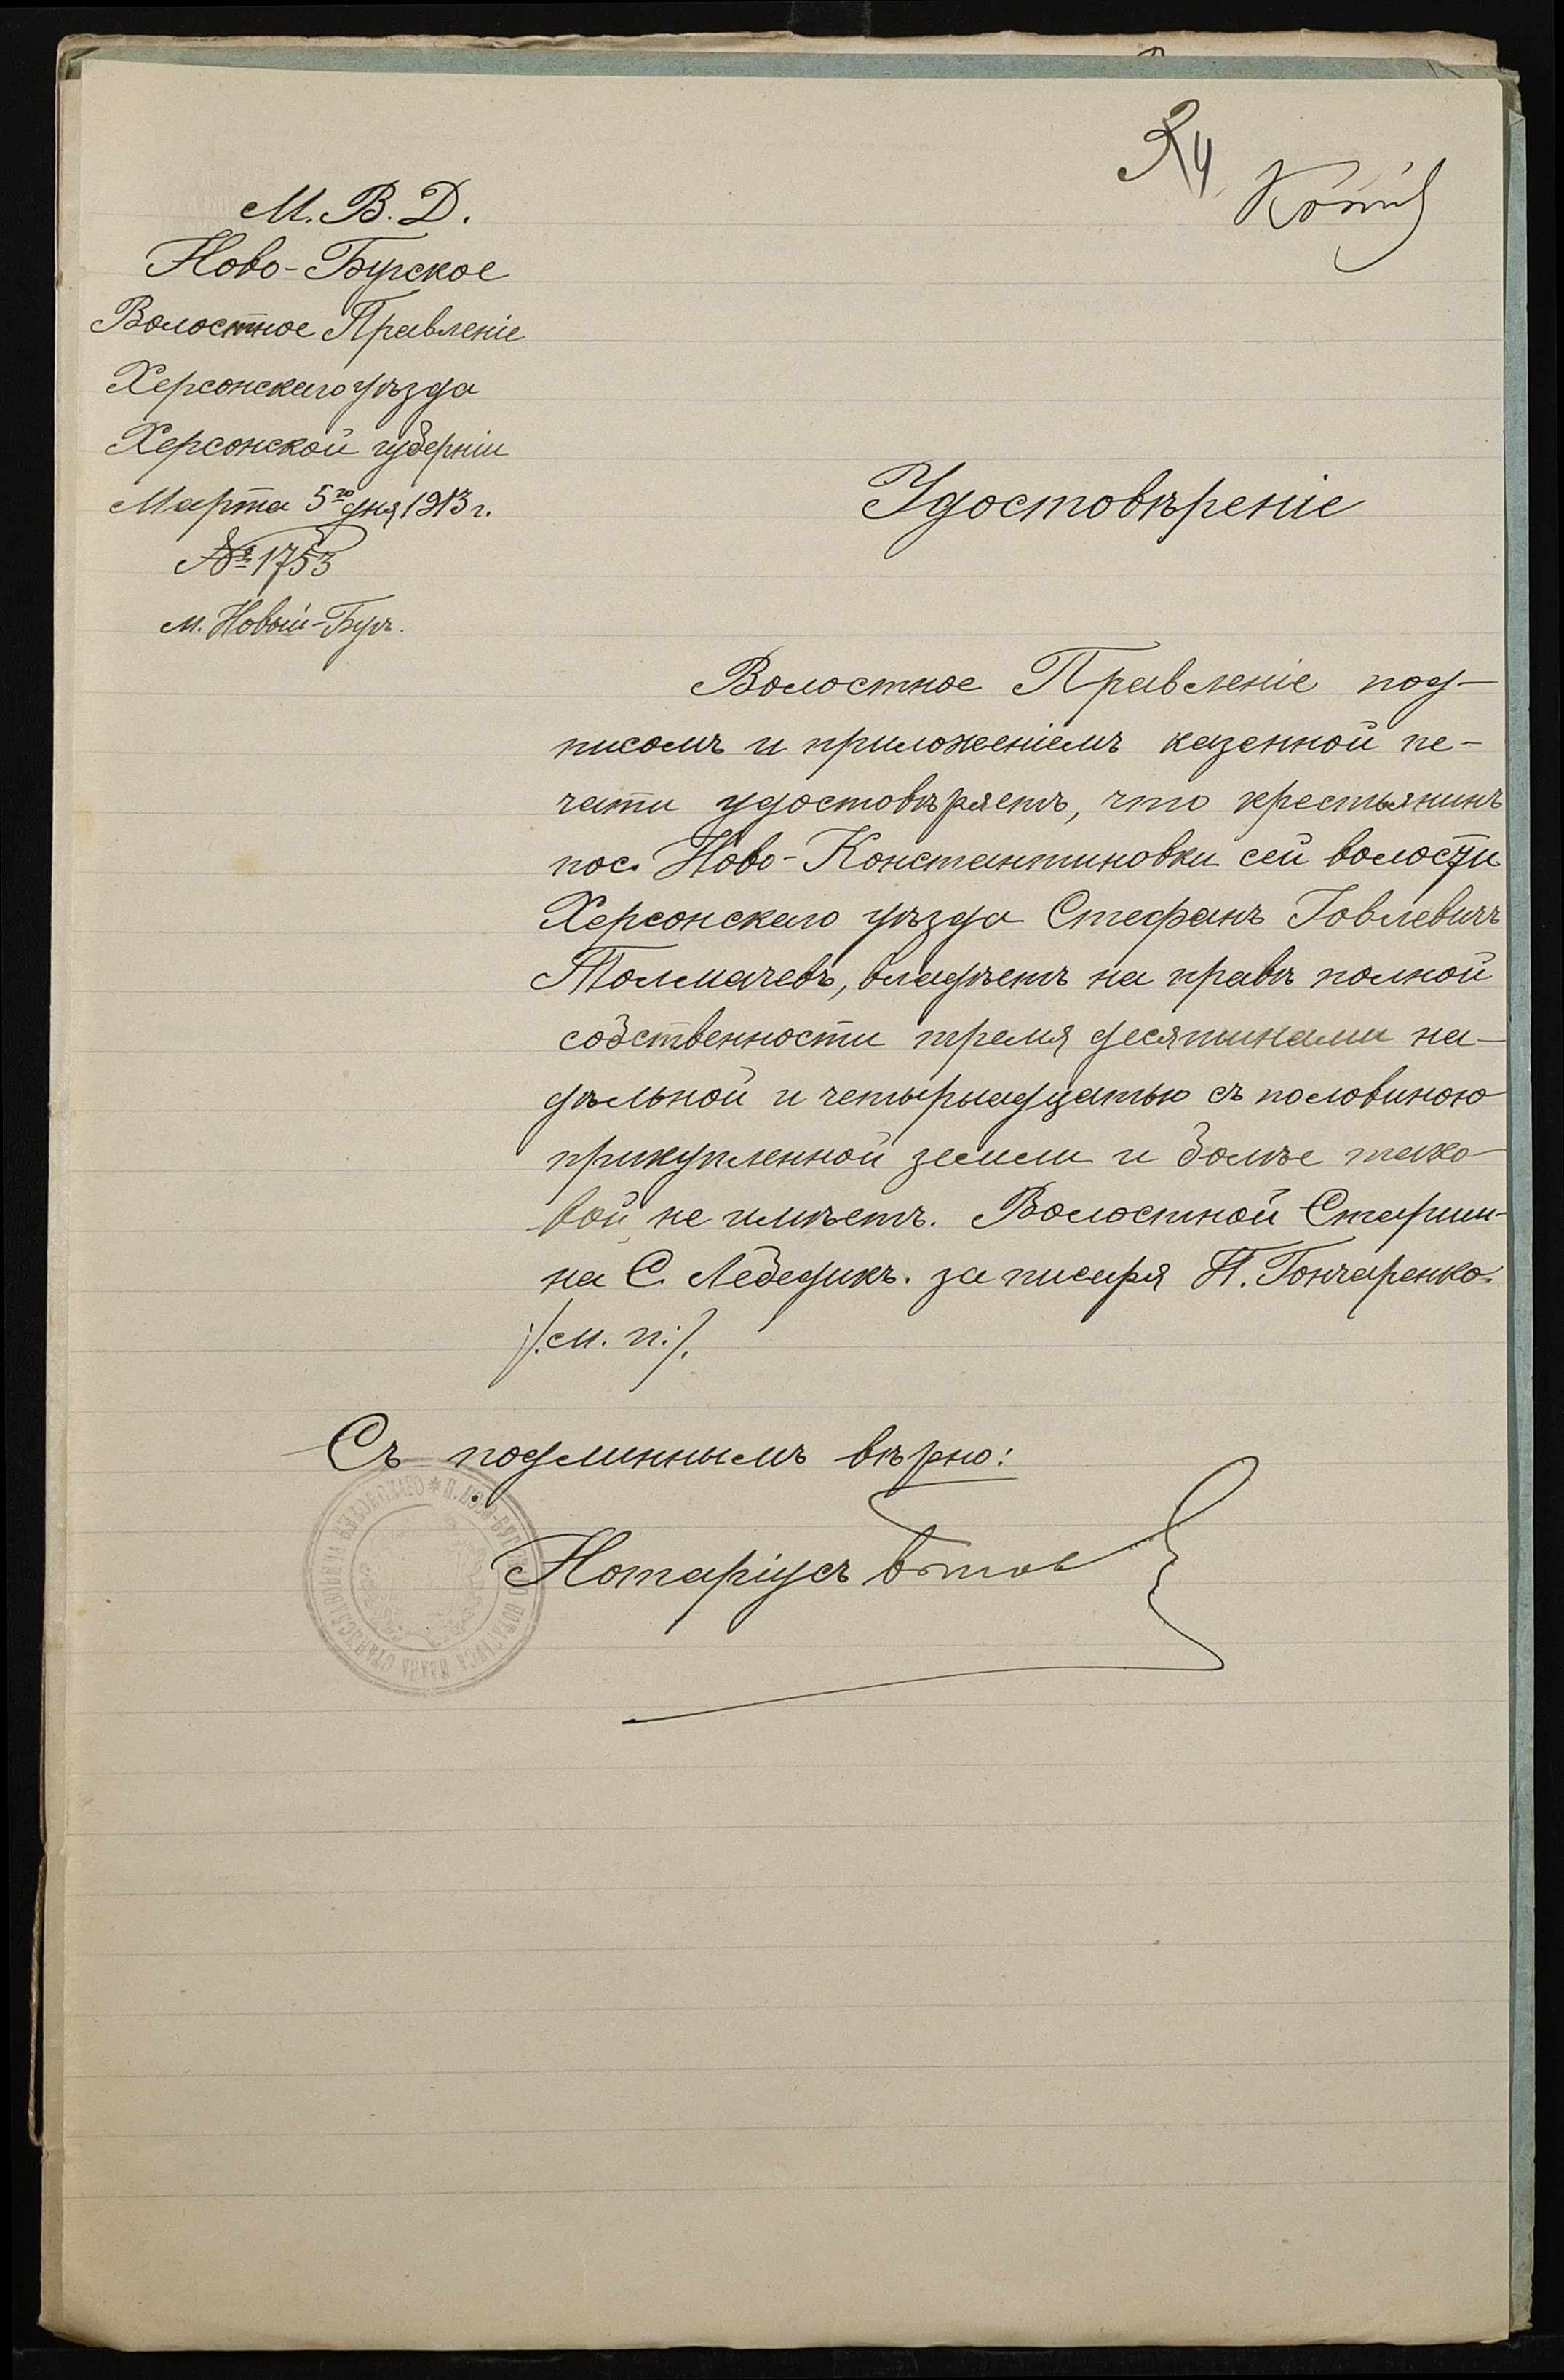 Копія
М. В. Д.
Ново-Бугское
Волостное Правленіе
Херсонскаго уѣзда
Херсонской губерніи
Марта 5го дня 1913 г.
№ 1753
м. Новый-Бугъ.
Удостовѣреніе
Волостное Правленіе под-
писомъ и приложеніемъ казенной пе-
чати удостовѣряетъ, что крестьянинъ
пос. Ново-Константиновки сей волости
Херсонскаго уѣзда Стефанъ Іовлевичъ
Толмачевъ, владѣетъ на правѣ полной
собственности тремя десятинами на-
дѣльной и четырнадцатью съ половиною
прикупленной земли и болѣе тако-
вой не имѣетъ. Волостной Старши-
на С. Лебедикъ. за писаря Н. Гончаренко.
/. м. п. /.
Съ подлиннымъ вѣрно:
Нотаріусъ